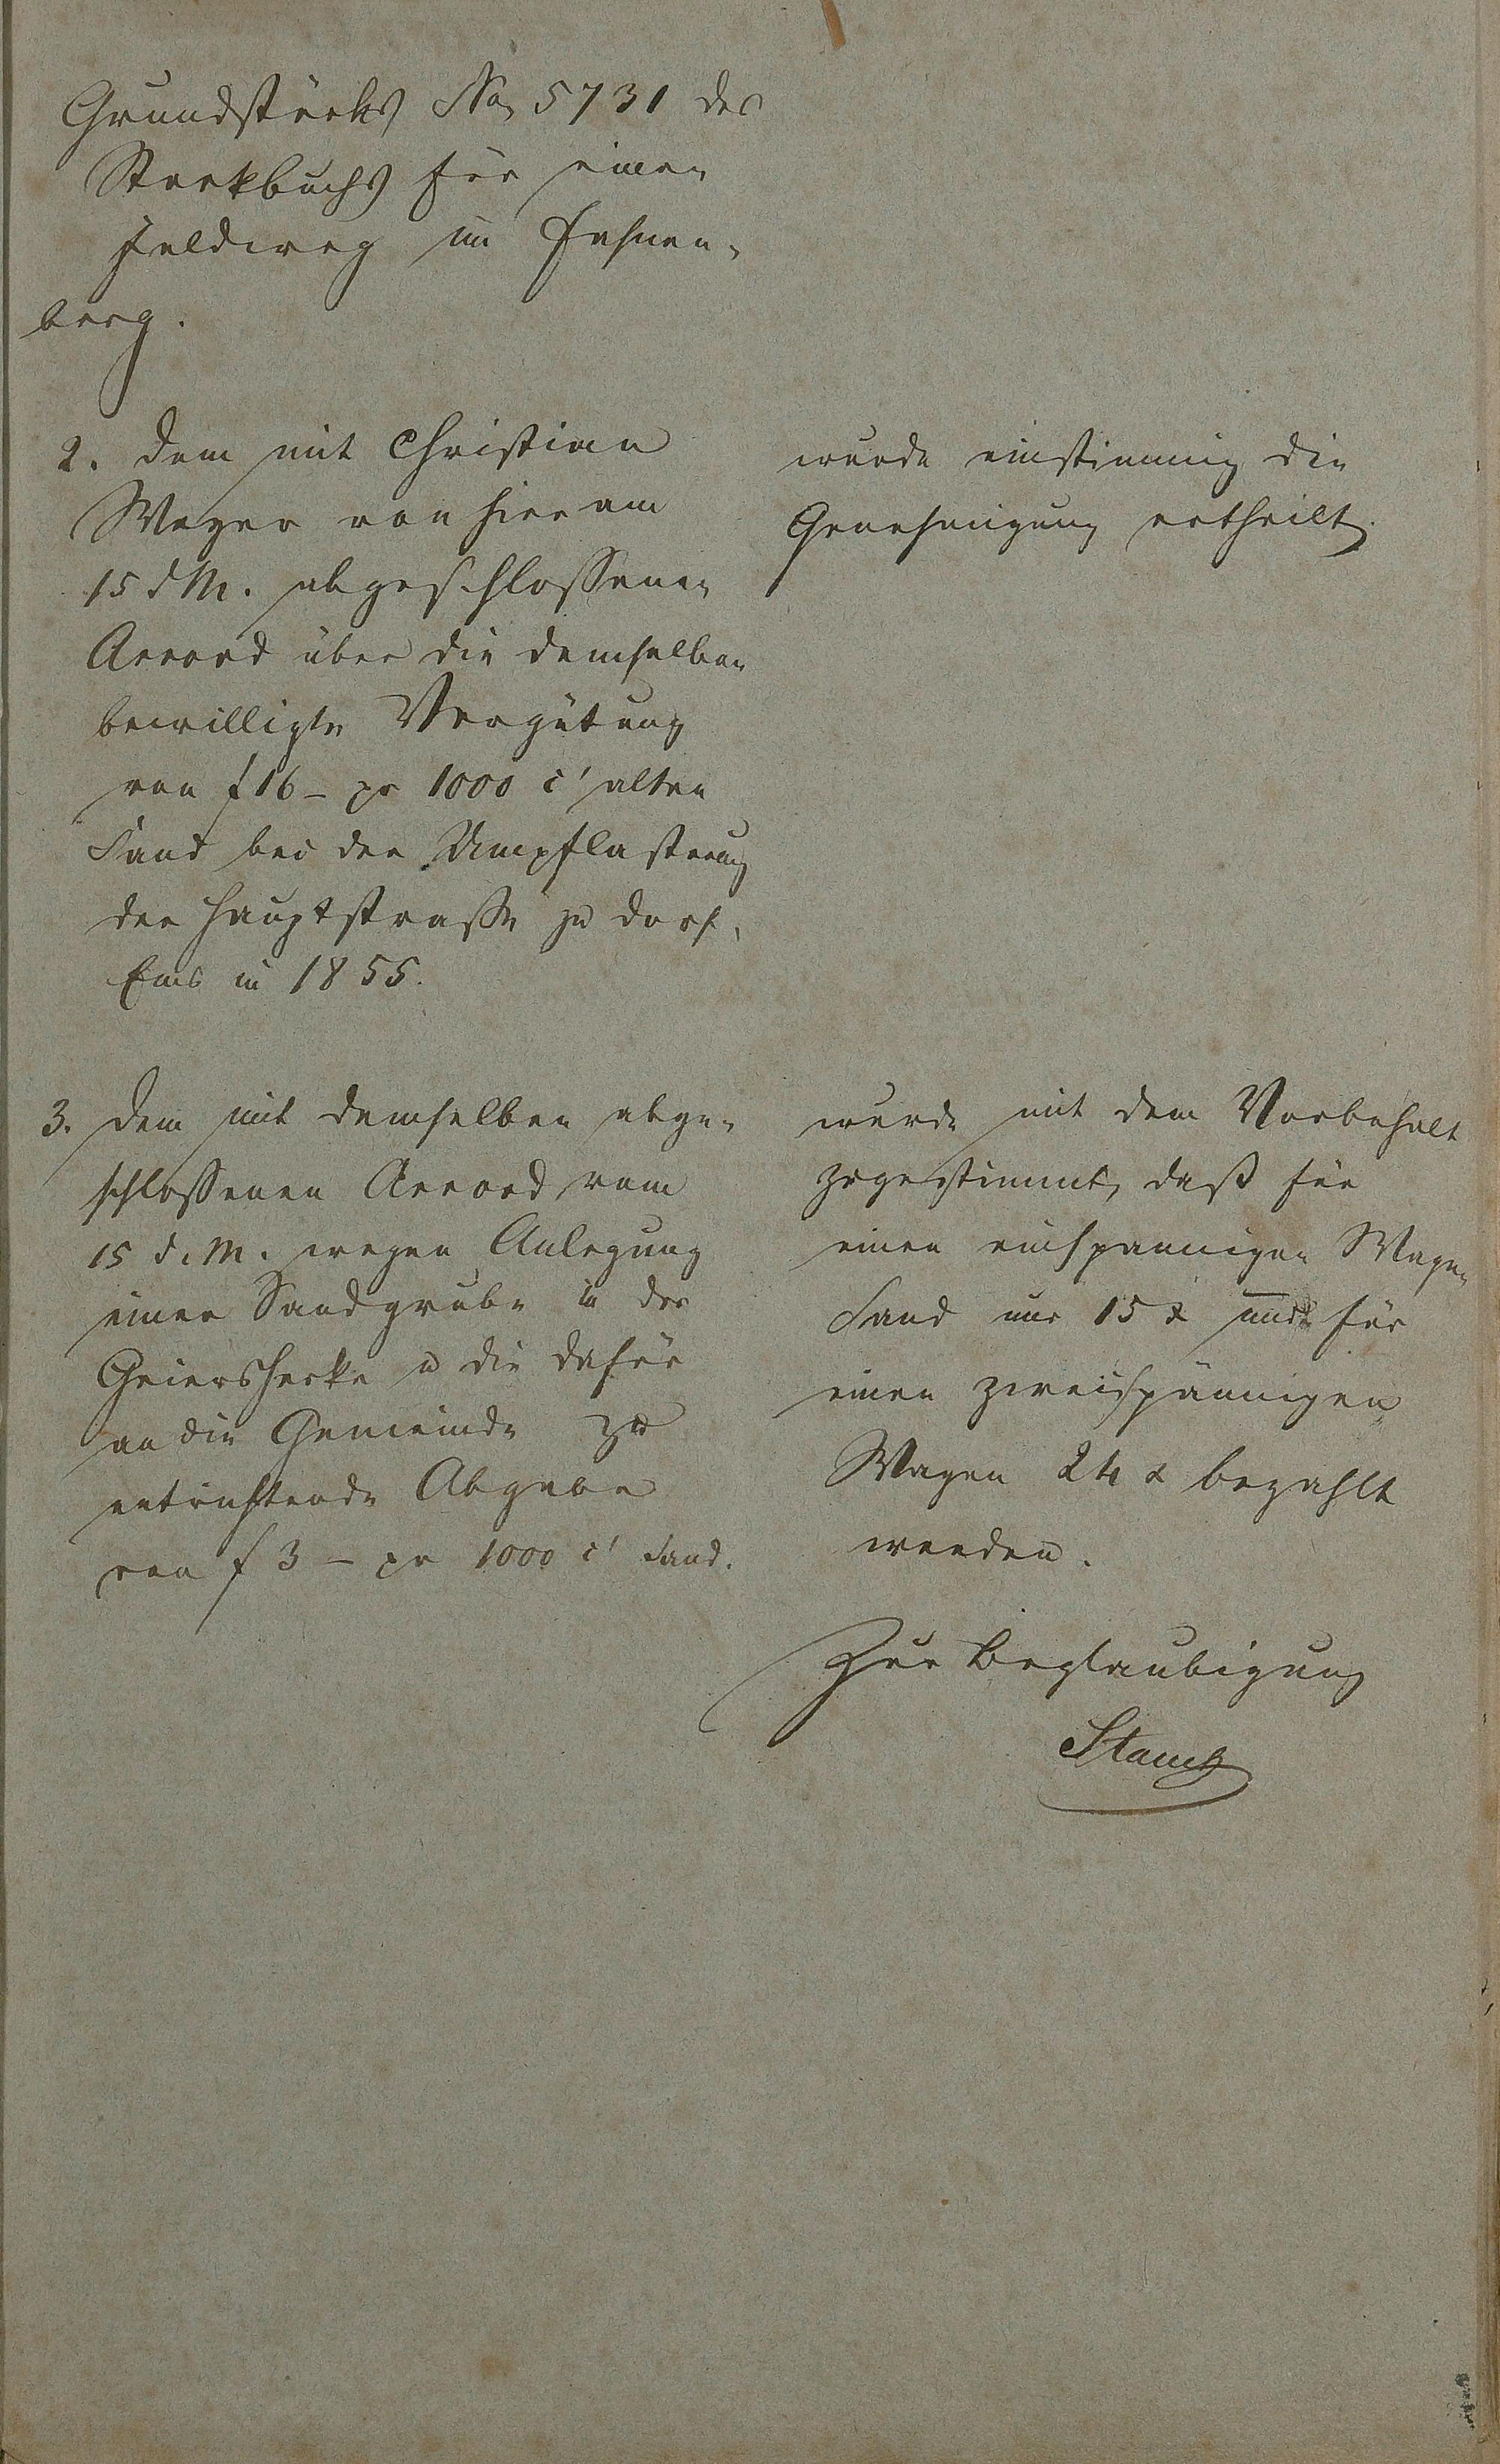 Grundstücks No 5731 des
Stockbuchs für einen
Feldweg im Hahnen-
berg.
2. dem mit Christian
Meyer von hier am
15 d M. abgeschlossenen
Accord über die demselben
bewilligte Vergütung
von f 16 – pr 1000 c' alten
Sand bei der Umpflasterung
der Hauptstraße zu Dorf-
Ems in 1855.
wurde einstimmig die
Genehmigung ertheilt.
3. dem mit demselben abge-
schlossenen Accord vom
15 d. M. wegen Anlegung
einer Sandgrube in der
Geiershecke u die dafür
an die Gemeinde zu
entrichtende Abgabe
von f 3 – pr 1000 c' Sand.
wurde mit dem Vorbehalt
zugestimmt, daß für
einen einspannigen Wagen
Sand nur 15 x und für
einen zweispännigen
Wagen 24 x bezahlt
werden.
Zur Beglaubigung